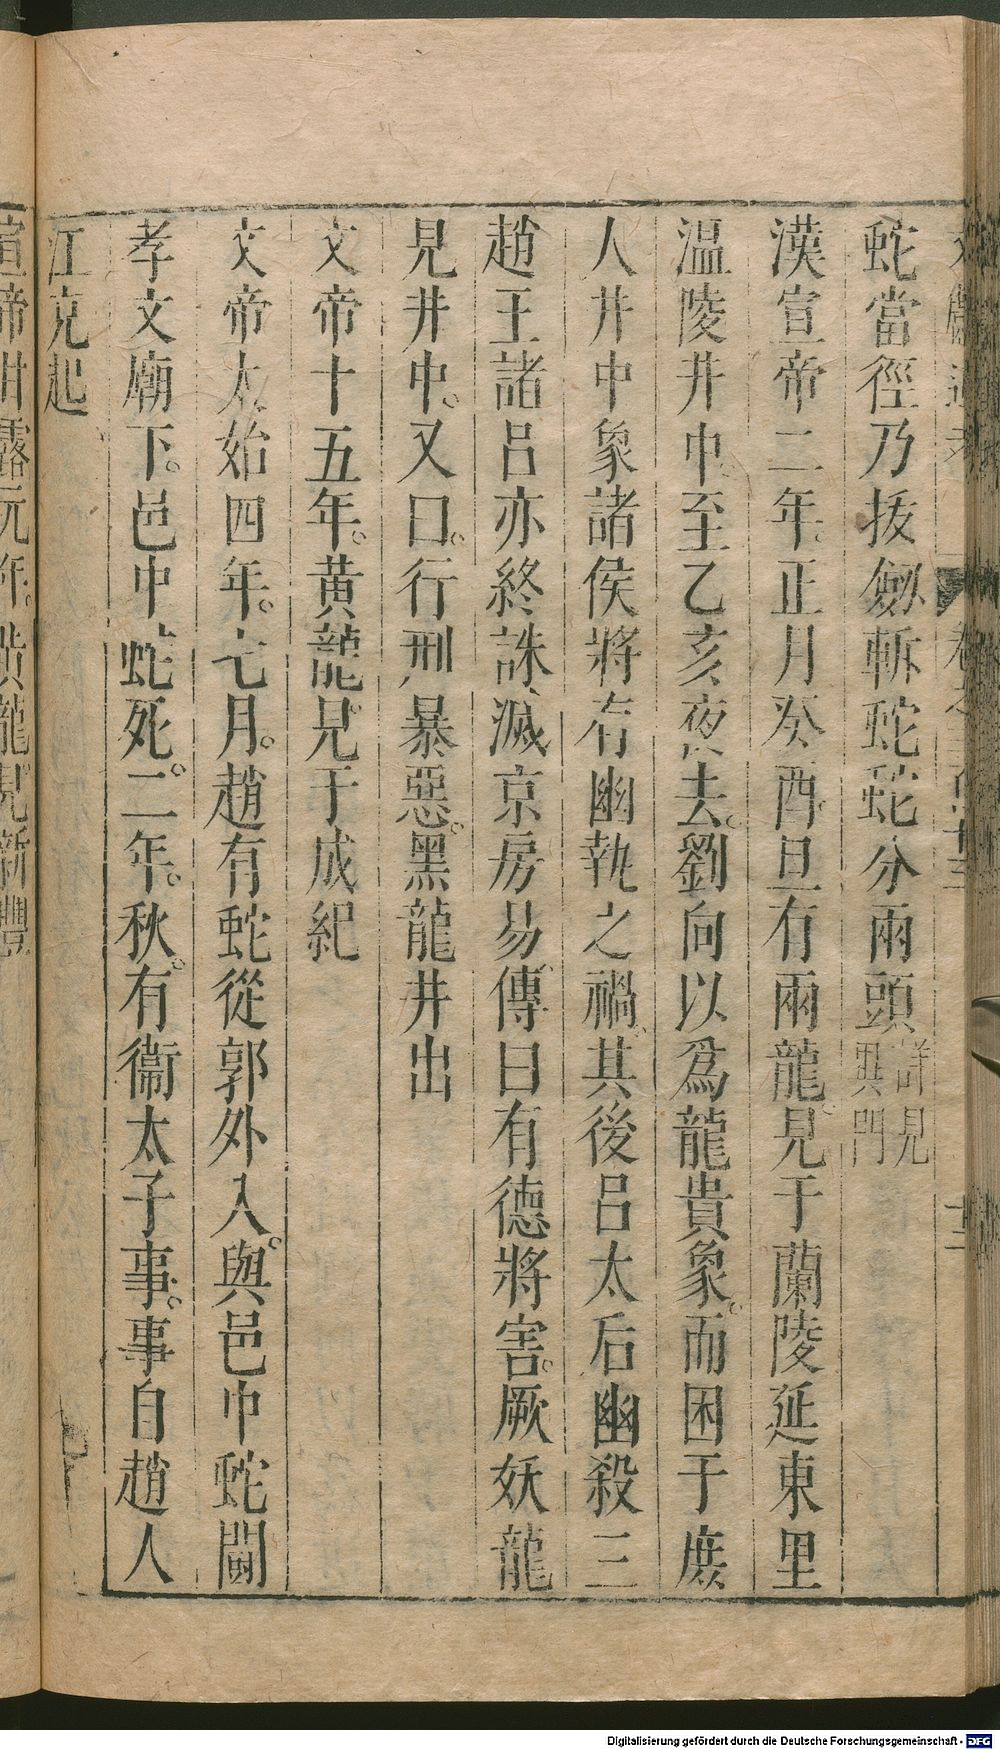 蛇當徑乃拔劔斬蛇蛇分兩頭詳見異門
漢宣帝二年。正月癸酉。旦有兩龍見于蘭陵延東里
温陵井中。至乙亥夜去。劉向以爲龍貴象。而困于庶
人井中象諸侯將有幽執之禍。其後呂太后幽殺三
趙王諸呂亦終誅滅京房易傳曰有德將害。厥妖龍
見井中。又曰。行刑暴惡。黑龍井出
文帝十五年。黄龍見于成紀
文帝太始四年。七月。趙有蛇從郭外入。與邑中蛇鬪
孝文廟下。邑中蛇死。二年。秋。有衞太子事。事自趙人
江充起
宣帝甘露元年。黄龍見新豐
卷之
十三
Digitalisierung gefördert durch die Deutsche Forschungsgemeinschaft - DFG